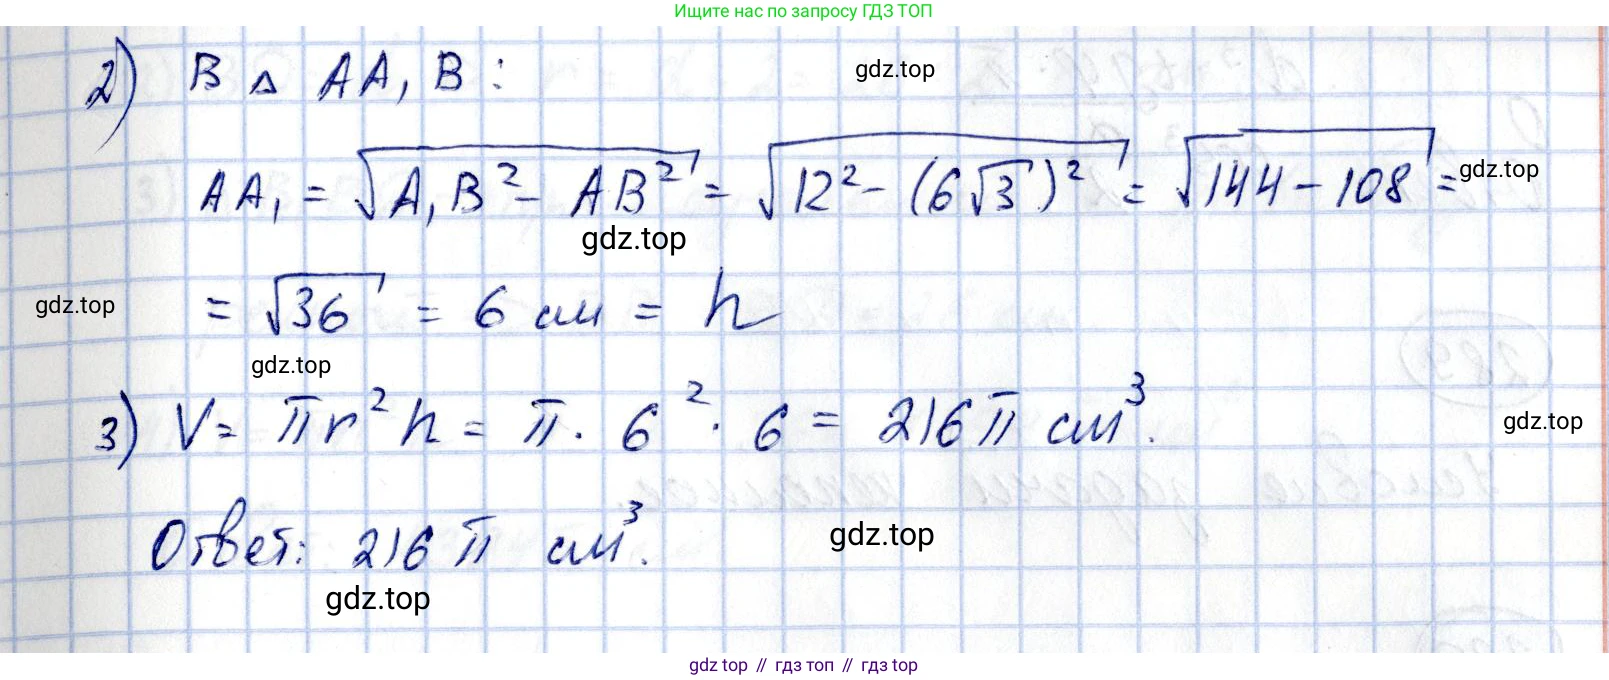 Ищите нас по запросу ГДЗ ТОП
2) В △ AA₁B :
gdz.top
AA₁ = √(A₁B² - AB²) = √(12² - (6√3)²) = √(144 - 108) =
gdz.top
gdz.top
= √36 = 6 см = h
gdz.top
gdz.top
3) V = πr²h = π · 6² · 6 = 216π см³.
gdz.top
Ответ: 216π см³.
gdz.top
gdz.top
gdz top // гдз топ // гдз top